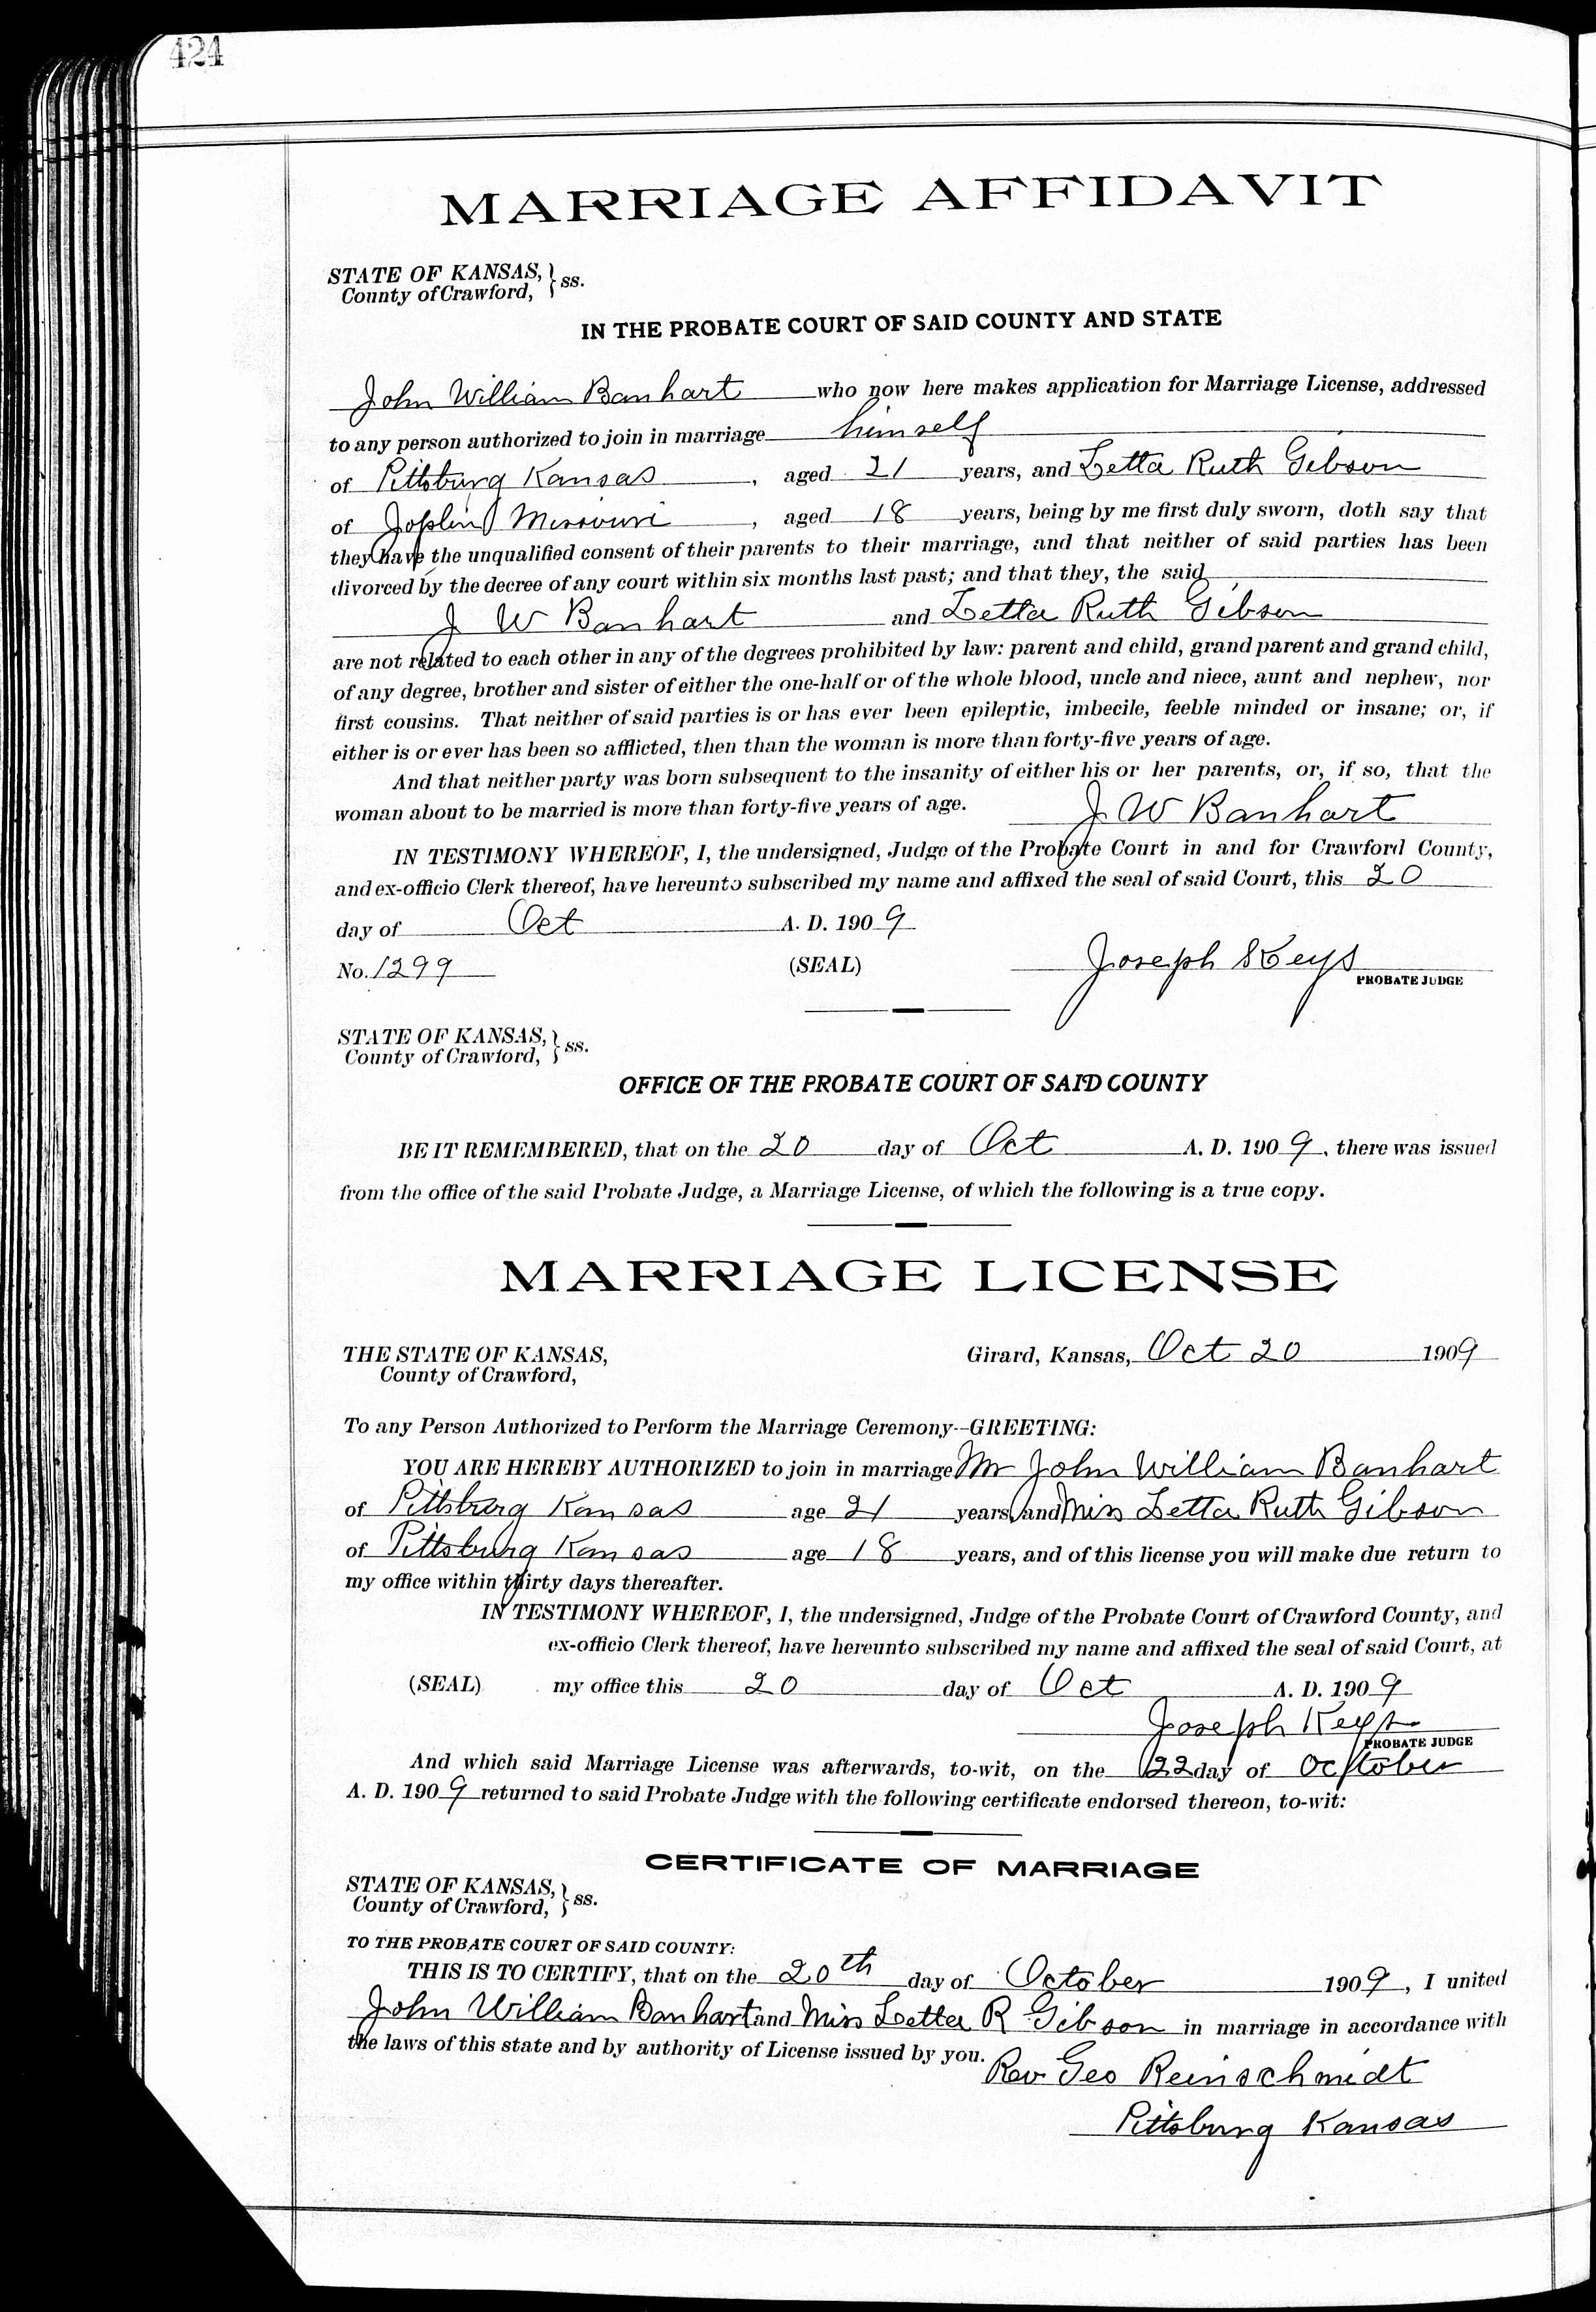 424
MARRIAGE AFFIDAVIT
STATE OF KANSAS, } ss.
County of Crawford,
IN THE PROBATE COURT OF SAID COUNTY AND STATE
John William Banhart who now here makes application for Marriage License, addressed
to any person authorized to join in marriage himself
of Pittsburg Kansas , aged 21 years, and Letta Ruth Gibson
of Joplin Missouri , aged 18 years, being by me first duly sworn, doth say that
they have the unqualified consent of their parents to their marriage, and that neither of said parties has been
divorced by the decree of any court within six months last past; and that they, the said
J W Banhart and Letta Ruth Gibson
are not related to each other in any of the degrees prohibited by law: parent and child, grand parent and grand child,
of any degree, brother and sister of either the one-half or of the whole blood, uncle and niece, aunt and nephew, nor
first cousins. That neither of said parties is or has ever been epileptic, imbecile, feeble minded or insane; or, if
either is or ever has been so afflicted, then than the woman is more than forty-five years of age.
And that neither party was born subsequent to the insanity of either his or her parents, or, if so, that the
woman about to be married is more than forty-five years of age. J W Banhart
IN TESTIMONY WHEREOF, I, the undersigned, Judge of the Probate Court in and for Crawford County,
and ex-officio Clerk thereof, have hereunto subscribed my name and affixed the seal of said Court, this 20
day of Oct A. D. 1909
No. 1299 (SEAL) Joseph Keys
PROBATE JUDGE
STATE OF KANSAS, } ss.
County of Crawford,
OFFICE OF THE PROBATE COURT OF SAID COUNTY
BE IT REMEMBERED, that on the 20 day of Oct A. D. 1909, there was issued
from the office of the said Probate Judge, a Marriage License, of which the following is a true copy.
MARRIAGE LICENSE
THE STATE OF KANSAS, Girard, Kansas, Oct 20 1909
County of Crawford,
To any Person Authorized to Perform the Marriage Ceremony--GREETING:
YOU ARE HEREBY AUTHORIZED to join in marriage Mr John William Banhart
of Pittsburg Kansas age 21 years, and Miss Letta Ruth Gibson
of Pittsburg Kansas age 18 years, and of this license you will make due return to
my office within thirty days thereafter.
IN TESTIMONY WHEREOF, I, the undersigned, Judge of the Probate Court of Crawford County, and
ex-officio Clerk thereof, have hereunto subscribed my name and affixed the seal of said Court, at
(SEAL) my office this 20 day of Oct A. D. 1909
Joseph Keys
PROBATE JUDGE
And which said Marriage License was afterwards, to-wit, on the 22 day of October
A. D. 1909 returned to said Probate Judge with the following certificate endorsed thereon, to-wit:
CERTIFICATE OF MARRIAGE
STATE OF KANSAS, } ss.
County of Crawford,
TO THE PROBATE COURT OF SAID COUNTY:
THIS IS TO CERTIFY, that on the 20th day of October 1909, I united
John William Banhart and Miss Letta R Gibson in marriage in accordance with
the laws of this state and by authority of License issued by you.
Rev Geo Reinschmidt
Pittsburg Kansas